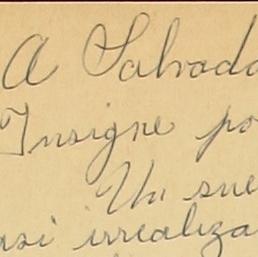 A Salvado
Insigne po
Un sue
asi irrealiza